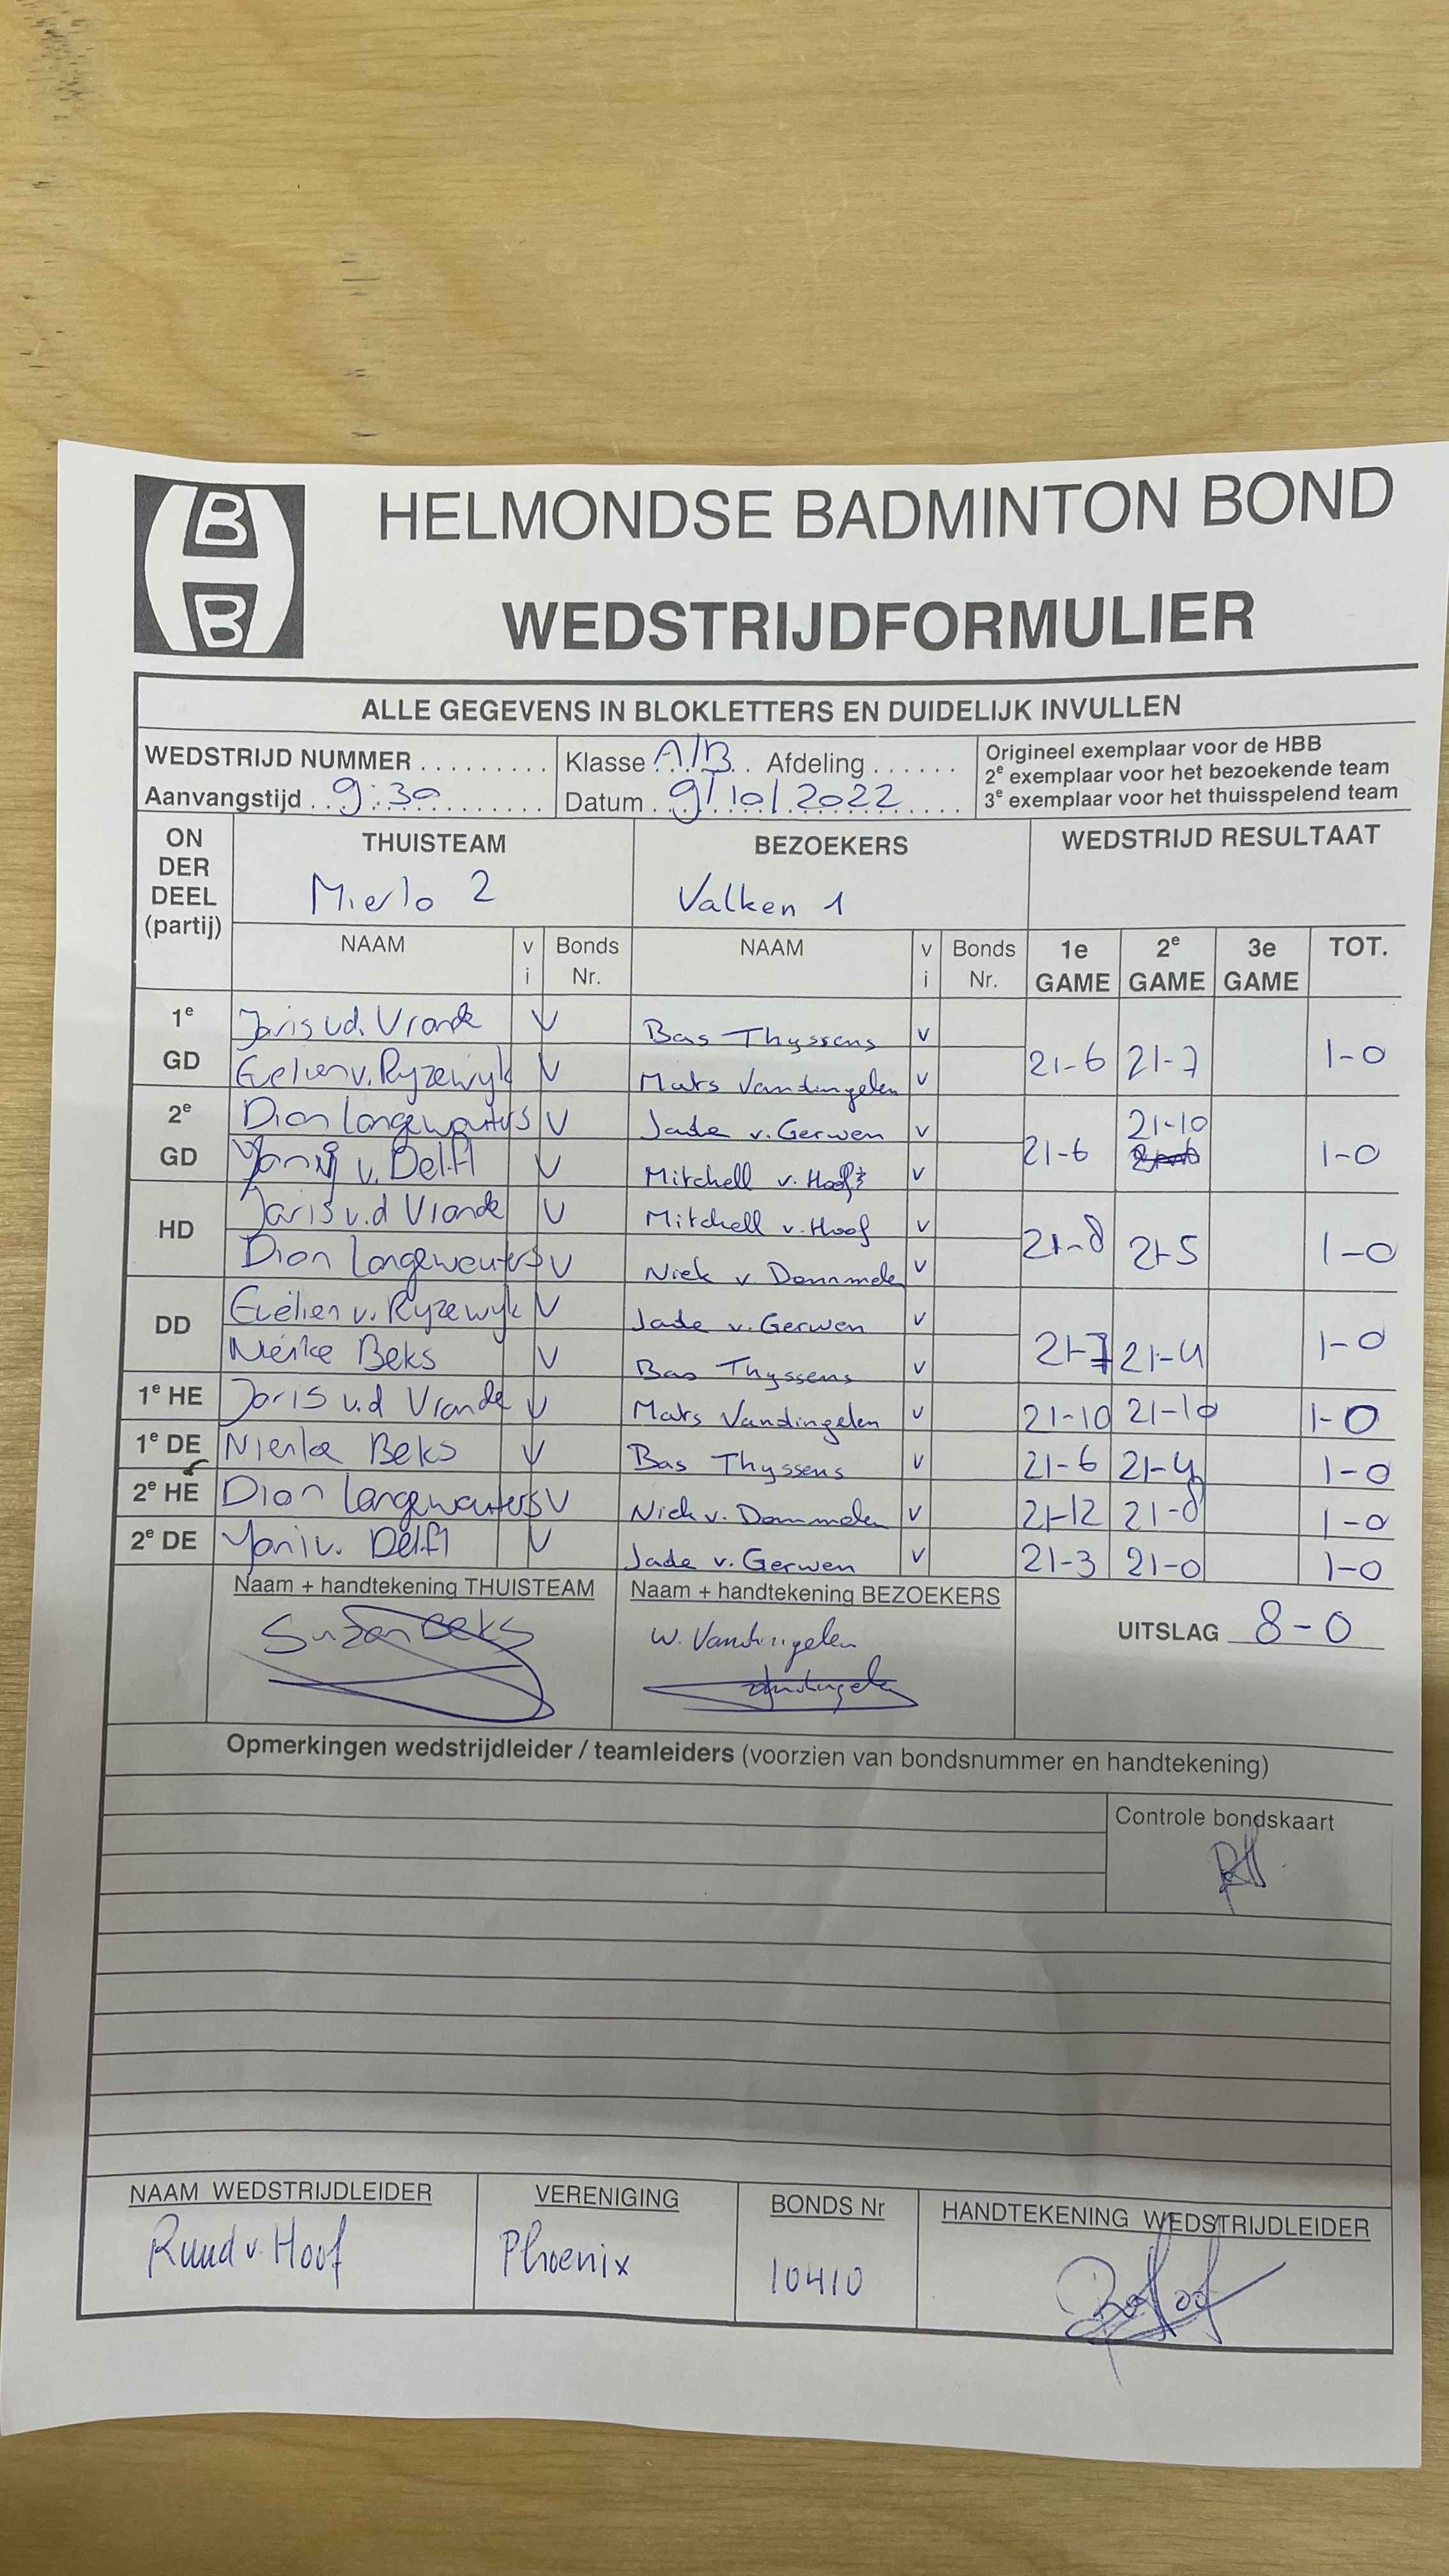 B
B
HELMONDSE BADMINTON BOND
WEDSTRIJDFORMULIER
ALLE GEGEVENS IN BLOKLETTERS EN DUIDELIJK INVULLEN
WEDSTRIJD NUMMER . . . . . . . . . Klasse A/B . . Afdeling . . . . . .
Aanvangstijd . . 9:30 . . . . . . . . Datum . . 9/10/2022 . . . .
Origineel exemplaar voor de HBB
2e exemplaar voor het bezoekende team
3e exemplaar voor het thuisspelend team
ON DER DEEL (partij) THUISTEAM BEZOEKERS WEDSTRIJD RESULTAAT
Mierlo 2 Valken 1
NAAM v i Bonds Nr. NAAM v i Bonds Nr. 1e GAME 2e GAME 3e GAME TOT.
1e GD Joris v.d. Vrande V Bas Thyssens v 21-6 21-7 1-0
Evelien v. Ryzewyk V Mats Vandingelen v
2e GD Dion Langewouters V Jade v. Gerwen v 21-6 21-10 1-0
v. Delft V Mitchell v. Hoof v
HD Joris v.d Vrande V Mitchell v. Hoof v 21-8 21-5 1-0
Dion Langewouters V Niek v Dommelen v
DD Evelien v. Ryzewyk V Jade v. Gerwen v 21-7 21-4 1-0
Nienke Beks V Bas Thyssens v
1e HE Joris v.d Vrande V Mats Vandingelen v 21-10 21-10 1-0
1e DE Nienke Beks V Bas Thyssens v 21-6 21-4 1-0
2e HE Dion Langewouters V Niek v. Dommelen v 21-12 21-8 1-0
2e DE Yoni v. Delft V Jade v. Gerwen v 21-3 21-0 1-0
Naam + handtekening THUISTEAM Naam + handtekening BEZOEKERS
Suzan Beks W. Vandingelen UITSLAG 8-0
Opmerkingen wedstrijdleider / teamleiders (voorzien van bondsnummer en handtekening)
Controle bondskaart
NAAM WEDSTRIJDLEIDER VERENIGING BONDS Nr HANDTEKENING WEDSTRIJDLEIDER
Ruud v. Hoof Phoenix 10410